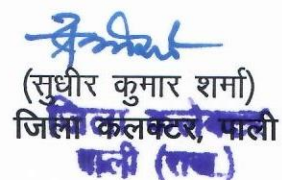 (सुधीर कुमार शर्मा)
जिला कलक्टर, पाली
पाली (राज)